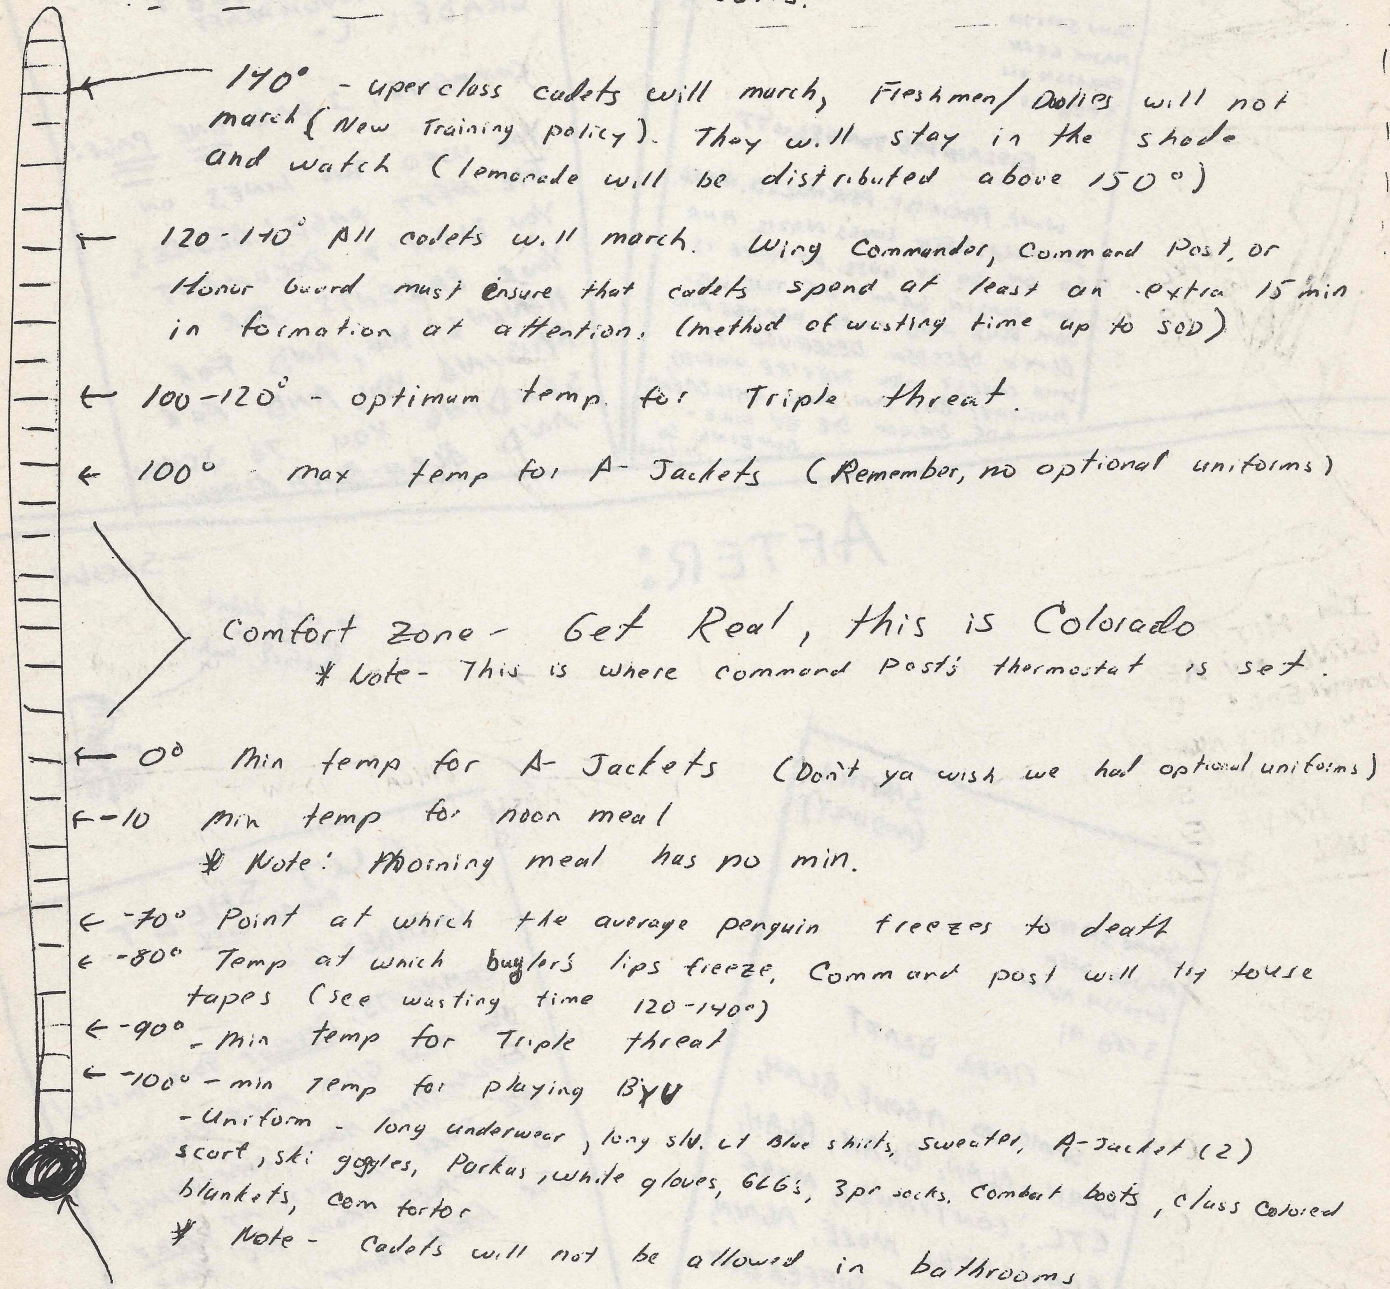 140° - uper class cadets will march, Freshmen/Doolies will not
march (New Training policy). They will stay in the shade
and watch (lemonade will be distributed above 150°)
120-140° All cadets will march. Wing Commander, Command Post, or
Honor Guard must ensure that cadets spend at least an extra 15 min
in formation at attention. (method of wasting time up to SOD)
100-120° - optimum temp. for Triple threat.
100° - max temp for A-Jackets (Remember, no optional uniforms)
AFTER:
Comfort Zone - Get Real, this is Colorado
* Note - This is where command Post's thermostat is set.
0° Min temp for A-Jackets (Don't ya wish we had optional uniforms)
-10 Min temp for noon meal
* Note: Morning meal has no min.
-70° Point at which the average penguin freezes to death
-80° Temp at which bugler's lips freeze, Command post will try to use
tapes (see wasting time 120-140°)
-90° - Min temp for Triple threat
-100° - min Temp for playing BYU
- Uniform - long underwear, long slv. lt Blue shirts, sweater, A-Jacket (2)
scarf, ski goggles, Parkas, white gloves, GLG's, 3pr socks. Combat boots, class colored
blankets, comfortor
* Note - Cadets will not be allowed in bathrooms